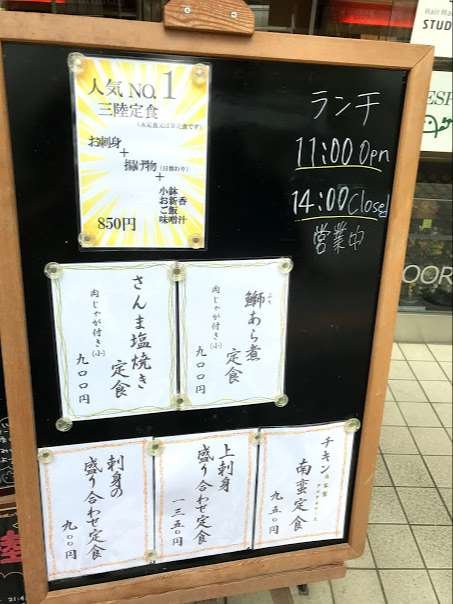 人気 NO.1
三陸定食
お刺身
+
揚げ物(日替わり)
+
小鉢
お新香
ご飯
味噌汁
850円
ランチ
11:00 Open
14:00 Closed
営業中
鰤あら煮
定食
肉じゃが付き(小)
九〇〇円
さんま塩焼き
定食
肉じゃが付き(小)
九〇〇円
チキン
南蛮定食
九五〇円
上刺身
盛り合わせ定食
一三五〇円
刺身の
盛り合わせ定食
九〇〇円
Hair Ma
STUD
ESP
OOR
21:4